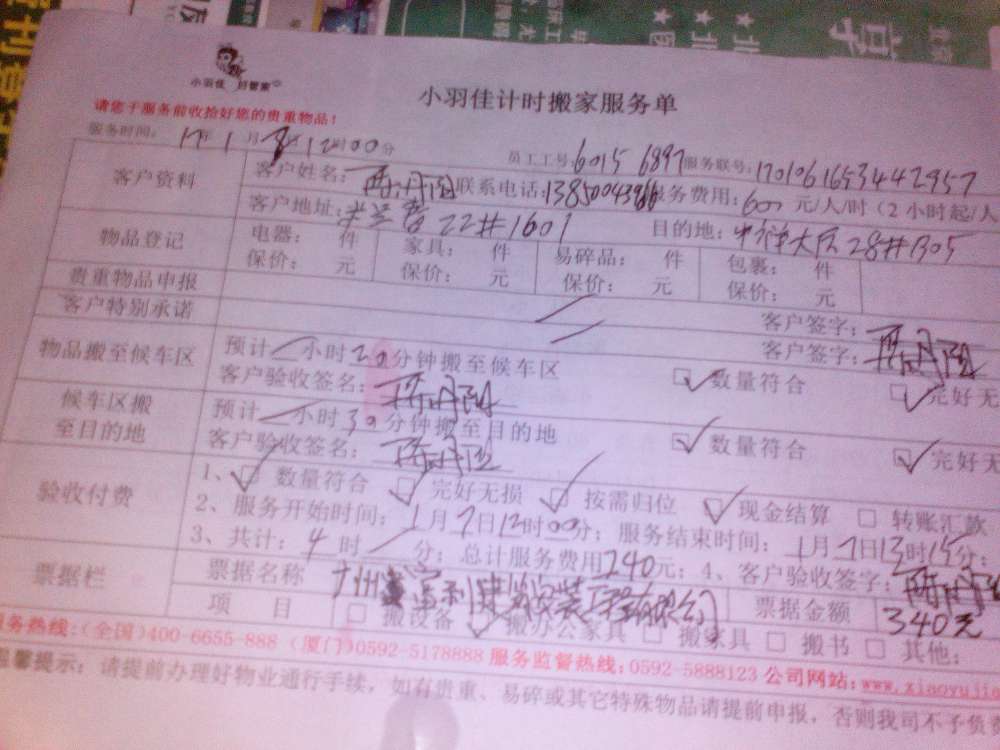 小羽佳 好管家
小羽佳计时搬家服务单
请您于服务前收拾好您的贵重物品！
服务时间：17年1月7日12时00分
员工工号：6015 6897 服务联号：1701061653442957
客户资料
客户姓名： 联系电话： 服务费用：60 元/人/时（2小时起/人
客户地址： 22#1601 目的地：中禅大厦28#1305
物品登记
电器： 件 家具： 件 易碎品： 件 包裹： 件
保价： 元 保价： 元 保价： 元 保价： 元
贵重物品申报
客户签字：
客户特别承诺
客户签字：
物品搬至候车区
预计 小时20分钟搬至候车区 数量符合 完好无
客户验收签名：
候车区搬至目的地
预计 小时30分钟搬至目的地 数量符合 完好无
客户验收签名：
验收付费
1、 数量符合 完好无损 按需归位 现金结算 转账汇款
2、服务开始时间：1月7日12时00分；服务结束时间：1月7日13时15分；
3、共计：4时 分；总计服务费用240元；4、客户验收签字：
票据栏
票据名称 广州 富利建筑安装工程有限公司 票据金额 340元
项 目 搬设备 搬办公家具 搬家具 搬书 其他：
服务热线：（全国）400-6655-888 （厦门）0592-5178888 服务监督热线：0592-5888123 公司网站：www.xiaoyujia
温馨提示：请提前办理好物业通行手续，如有贵重、易碎或其它特殊物品请提前申报，否则我司不予负责